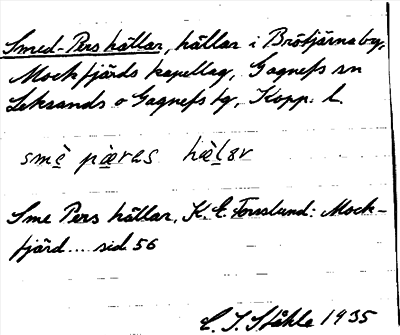 Smed-Pers hällar, hällar i Brötjärna by,
Mockfjärds kapellag, Gagnefs sn
Leksands o Gagnefs tg, Kopp. l.
smè̱ pæ̱ras hæ̀ḻər
Sme Pers hällar, K. E. Forsslund: Mock-
fjärd .... sid 56
C. I. Ståhle 1935